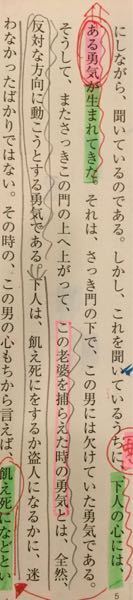 にしながら、聞いているのである。しかし、これを聞いているうちに、下人の心には、
ある勇気が生まれてきた。それは、さっき門の下で、この男には欠けていた勇気である。
そうして、またさっきこの門の上へ上がって、この老婆を捕らえた時の勇気とは、全然、
反対な方向に動こうとする勇気である。下人は、飢え死にをするか盗人になるかに、迷
わなかったばかりではない。その時の、この男の心もちから言えば、飢え死になどとい
5